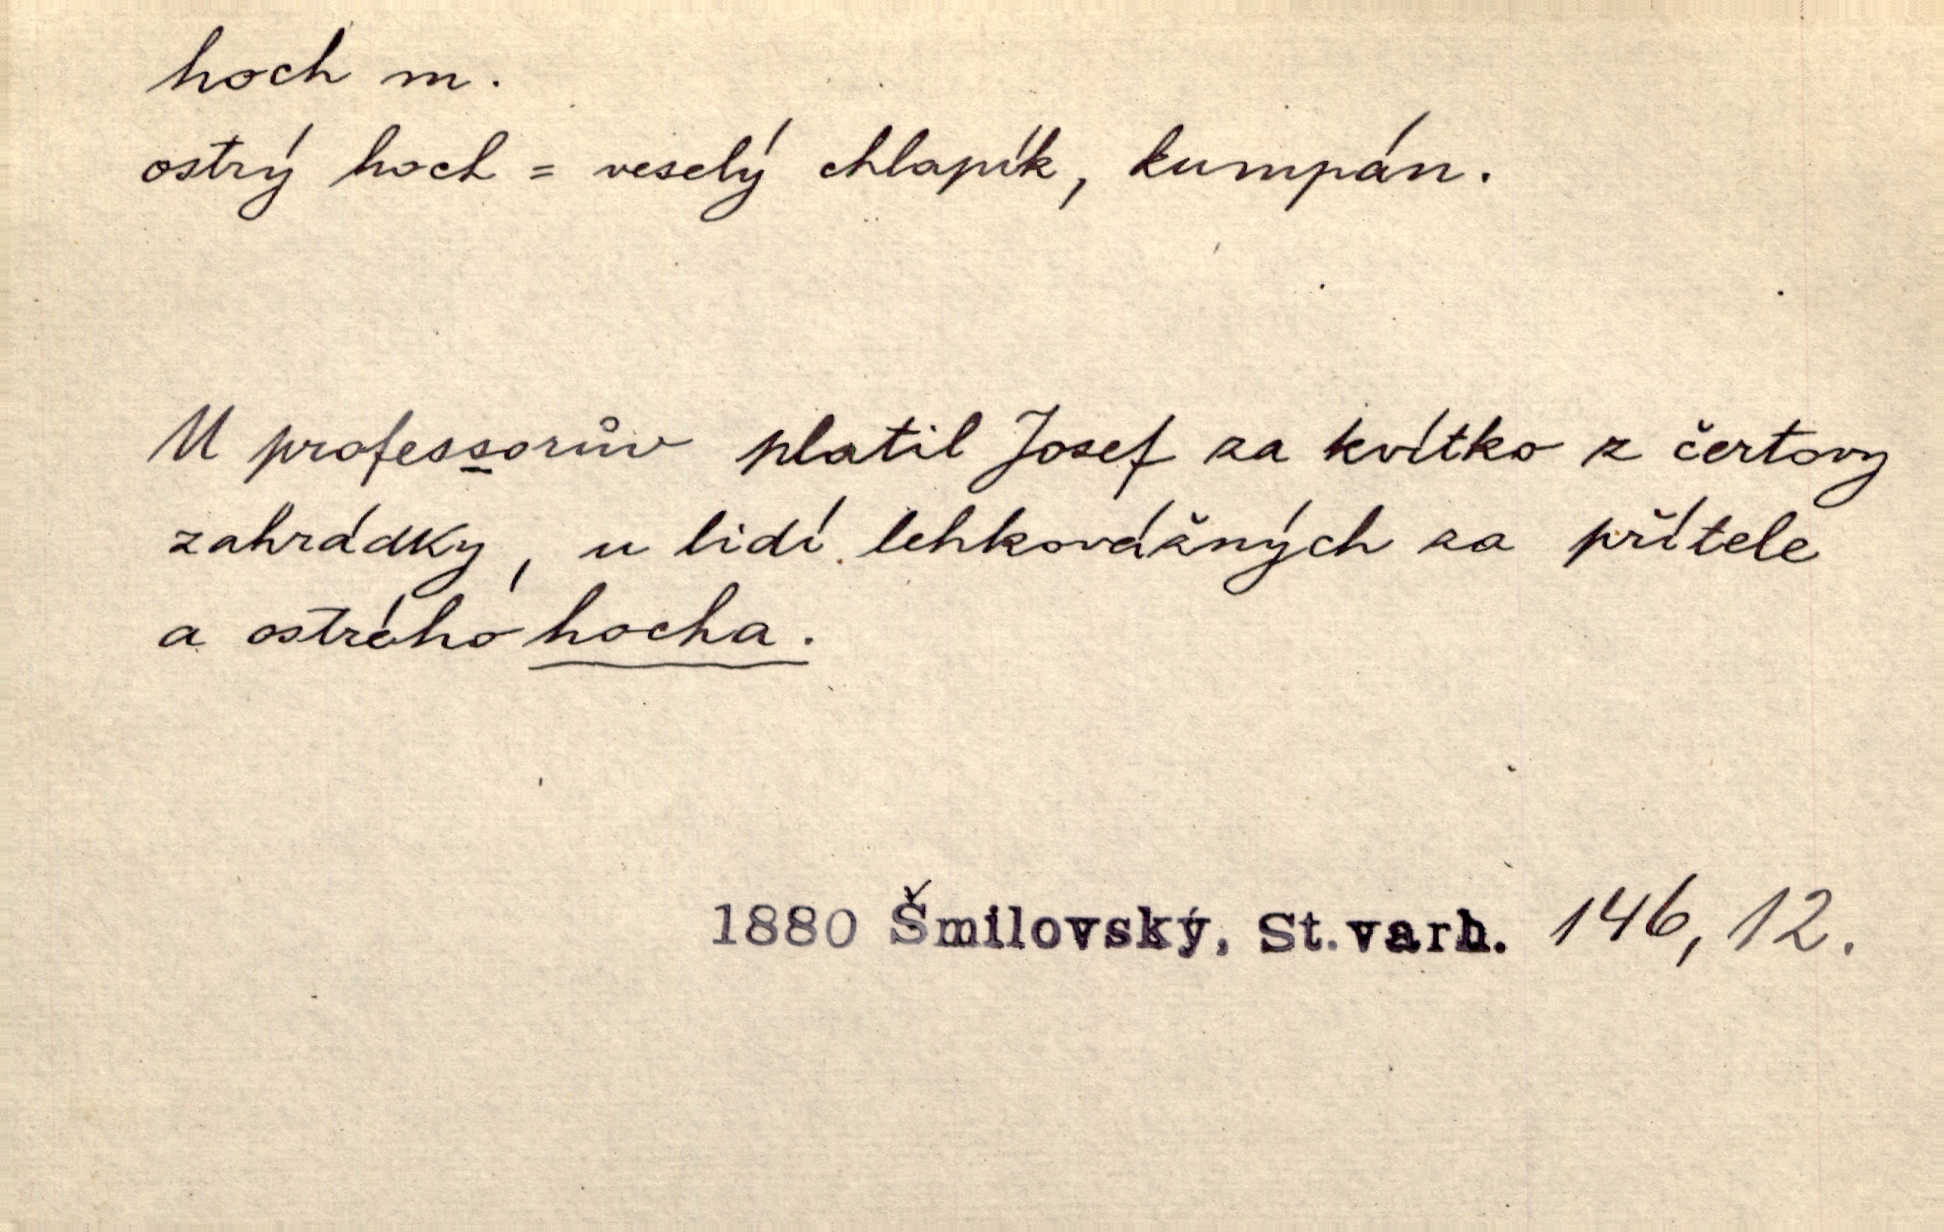 hoch m.
ostrý hoch = veselý chlapík, kumpán.
U professorův platil Josef za kvítko z čertovy
zahrádky, u lidí lehkovážných za přítele
a ostrého hocha.
1880 Šmilovský, St. varh. 146, 12.